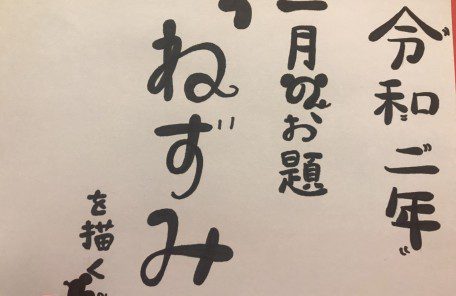 令和二年
一月のお題
ねずみ
を描く